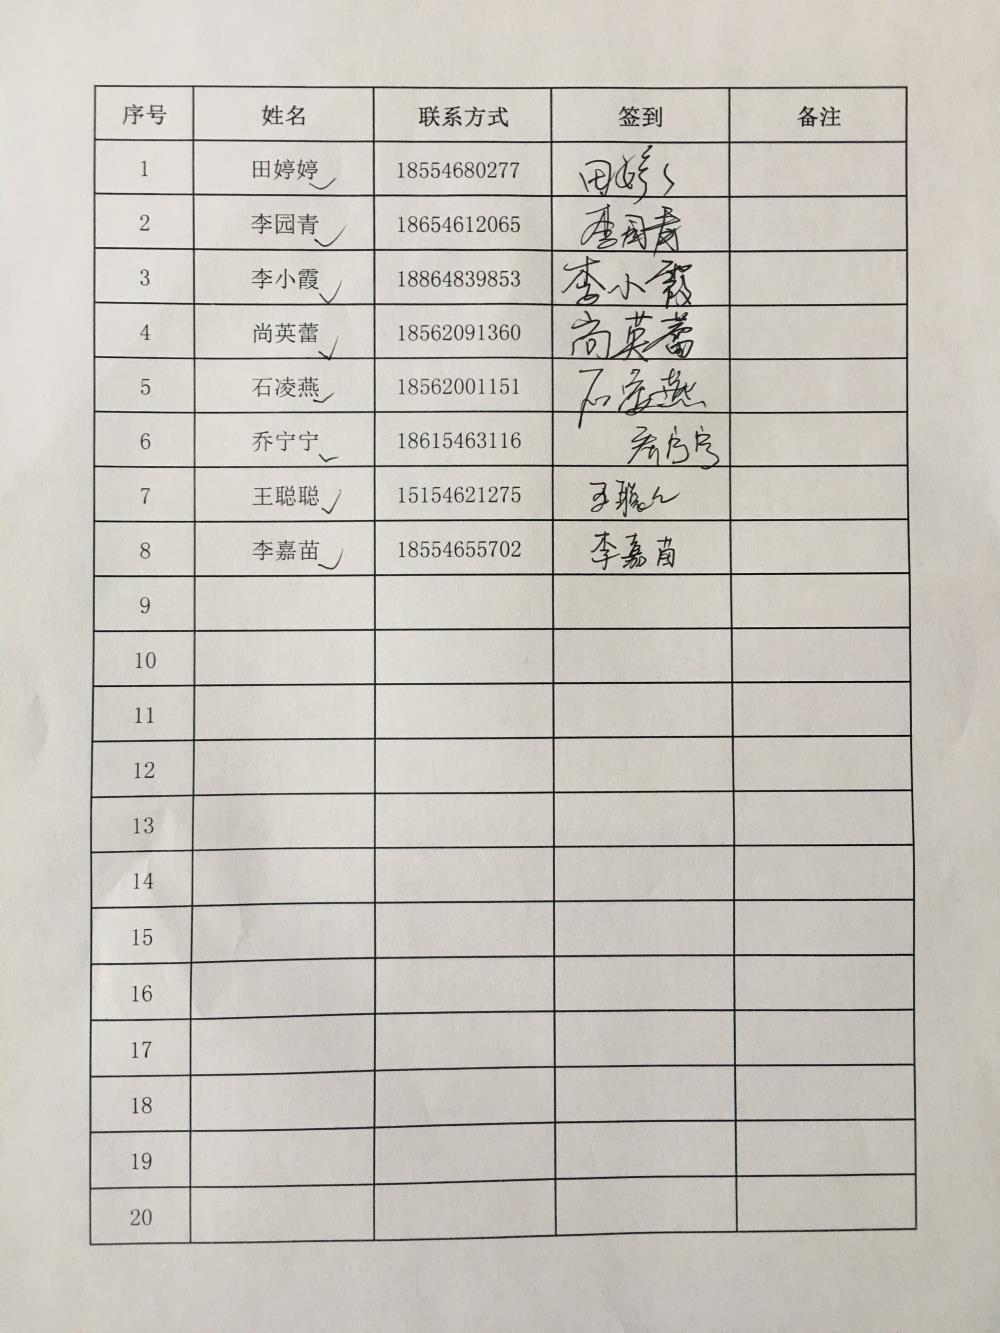 序号 姓名 联系方式 签到 备注
1 田婷婷 18554680277 田婷々
2 李园青 18654612065 李园青
3 李小霞 18864839853 李小霞
4 尚英蕾 18562091360 尚英蕾
5 石凌燕 18562001151 石凌燕
6 乔宁宁 18615463116 乔宁宁
7 王聪聪 15154621275 王聪々
8 李嘉苗 18554655702 李嘉苗
9
10
11
12
13
14
15
16
17
18
19
20